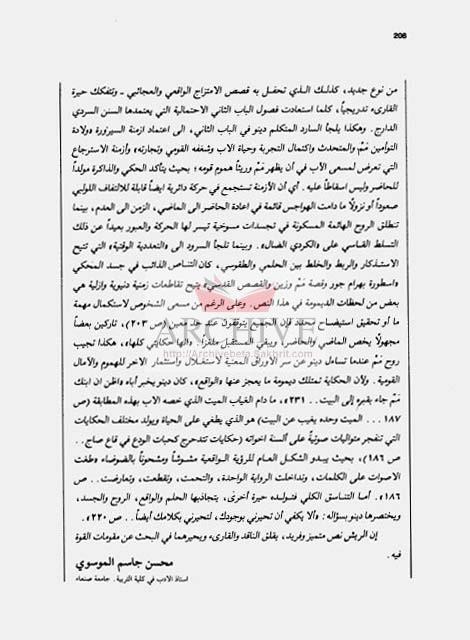 208
من نوع جديد، كذلك الذي تحفل به قصص الامتزاج الواقعي والعجائبي - وتتفكك حيرة
القارىء تدريجياً، كلما استعادت فصول الباب الثاني الاحتمالية التي يعتمدها السنن السردي
الدارج. وهكذا يلجأ السارد المتكلم دينو في الباب الثاني، الى اعتماد ازمنة السيرورة «ولادة
التوأمين مَمْ والمتحدث واكتمال التجربة وحياة الاب وشغفه القومي وتجارته» وأزمنة الاسترجاع
التي تعرض لمسعى الأب في أن يظهر مَمْ وريثاً هموم قومه» بحيث يتأكد الحكي والذاكرة مولداً
للحاضر وليس اسقاطاً عليه. أي أن الأزمنة تستجمع في حركة دائرية ايضاً قابلة للالتفاف اللولبي
صعوداً أو نزولاً ما دامت الهواجس قائمة في اعادة الحاضر الى الماضي، الزمن الى العدم، بينما
تنطلق الروح الهائمة المسكونة في تجسدات مسوخية تيسر لها الحركة والعبور بعيداً عن ذلك
التسلط القاسي على «الكردي الضال». وبينما تلجأ السرود الى «التعددية الوقتية» التي تتيح
الاستذكار والربط والخلط بين الحلمي والطقوسي، كان التناص الذائب في جسد المحكي
«اسطورة بهرام جور وقصة مَمْ وزين والقصص القدسي» يتيح تقاطعات زمنية دنيوية وازلية هي
بعض من لحظات الديمومة في هذا النص. وعلى الرغم من مسعى الشخوص لاستكمال مهمة
ما أو تحقيق استيضاح محدد فإن الجميع يتوقفون عند حل معين (ص ٢٠٣)، تاركين بعضاً
مجهولاً يخص الماضي والحاضر، ويبقى المستقبل ملغزاً. «انها حكايتي كلها»، هكذا تجيب
روح مَمْ عندما تساءل دينو عن سر الأوراق المعنية لاستغلال واستثمار الآخر للهموم والآمال
القومية. ولأن الحكاية تمتلك ديمومة ما يعجز عنها «الواقع»، كان دينو يخبر أباه «اظن ان ابنك
مَمْ جاء بقبره إلى البيت.. ٢٣١»، ما دام الغياب الميت الذي خصه الاب بهذه المطابقة (ص
١٨٧ ... الميت وحده يغيب عن البيت) هو الذي يطغى على الحياة ويولد مختلف الحكايات
التي تنفجر متواليات صوتيةً على ألسنة اخوانه (حكايات تتدحرج كحبات الودع في قاع صاج..
ص ١٨٦)، بحيث يبدو الشكل العام للرؤية الواقعية مشوشاً ومشحوناً بالضوضاء «طغت
الاصوات على الكلمات، وتداخلت الرواية الواحدة، والتحمت، وتقطعت، وتعارضت.. ص
١٨٦». أما التناسق الكلي فتولده حيرة أخرى، يتجاذبها الحلم والواقع، الروح والجسد،
ويختصرها دينو بسؤاله: «ألا يكفي أن تحيرني بوجودك، لتحيرني بكلامك أيضاً.. ص ٢٢٠».
إن الريش نص متميز وفريد، يقلق الناقد والقارىء ويحيرهما في البحث عن مقومات القوة
فيه.
محسن جاسم الموسوي
استاذ الادب في كلية التربية. جامعة صنعاء
ARCHIVE
http://Archivebeta.Sakhrit.com